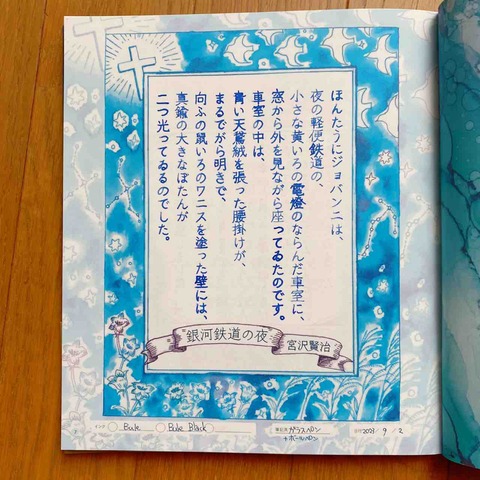 ほんたうにジョバンニは、
夜の軽便鉄道の、
小さな黄いろの電燈のならんだ車室に、
窓から外を見ながら座ってゐたのです。
車室の中は、
青い天鵞絨を張った腰掛けが、
まるでがら明きで、
向ふの鼠いろのワニスを塗った壁には、
真鍮の大きなぼたんが
二つ光ってゐるのでした。
銀河鉄道の夜 宮沢賢治
インク Bule Bule Black 筆記具 ガラスペン 日付 2023/9/2
+ボールペン